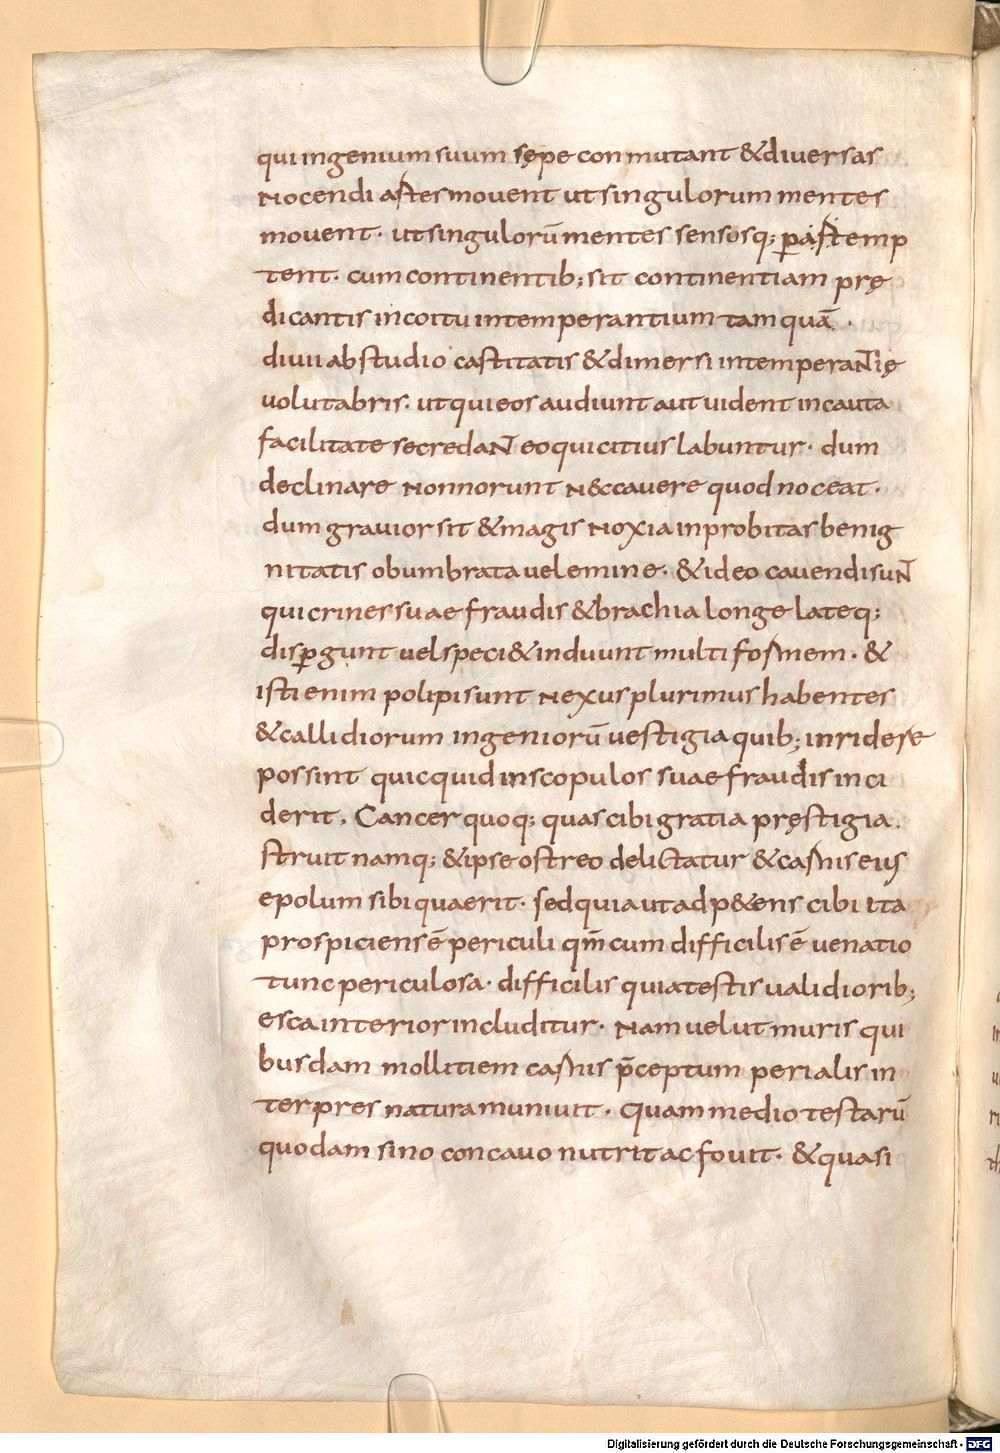 qui ingenium suum sępe conmutant & diversas
nocendi artes movent ut singulorum mentes
movent· ut singulorū mentes sensosq; p̱ artemp
tent· cum continentib; sit continentiam prę
dicantis in coitu intemperantium tam quā·
divii ab studio castitatis & dimersi intemperantię
volutabris· ut qui eos audiunt aut vident incauta
facilitate se credant eo qui citius labuntur· dum
declinare non norunt nec cavere quod noceat·
dum gravior sit & magis noxia inprobitas benig
nitatis obumbrata velemine· & ideo cavendi sunt
qui crines suae fraudis & brachia longe lateq;
disp̱gunt vel speci& induunt multiformem· &
isti enim polipi sunt nexus plurimus habentes
& callidiorum ingeniorū vestigia quib; inridere
possint quicquid in scopulos suae fraudis inci
derit· Cancer quoq; quas cibi gratia pręstigia·
struit namq; & ipse ostreo delictatur & carnis eius
epolum sibi quaerit· sed quia ut adp&ens cibi ita
prospiciens ē periculi qm̄ cum difficilis ē venatio
tunc periculosa· difficilis quia testis validiorib;
esca interior includitur· Nam velut muris qui
busdam mollitiem carnis p̄ceptum perialis in
terpres natura munivit· Quam medio testarū
quodam sino concavo nutrit ac fovit· & quasi
Digitalisierung gefördert durch die Deutsche Forschungsgemeinschaft - DFG